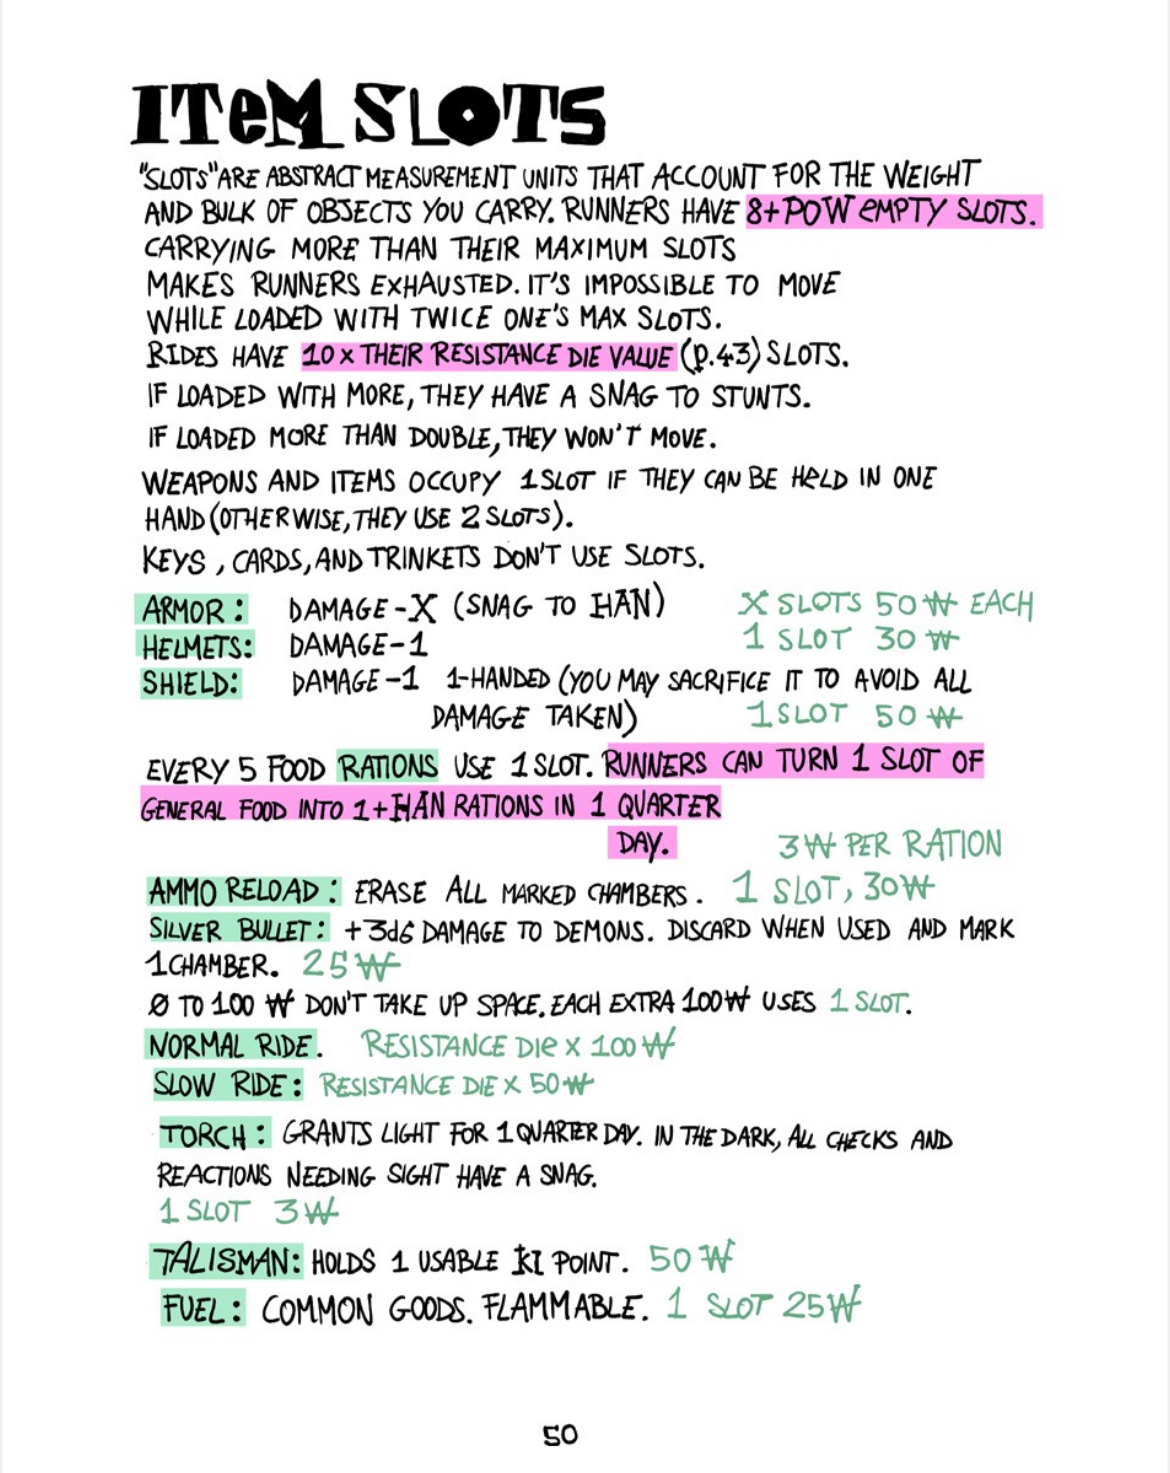 ITEM SLOTS
"SLOTS" ARE ABSTRACT MEASUREMENT UNITS THAT ACCOUNT FOR THE WEIGHT
AND BULK OF OBJECTS YOU CARRY. RUNNERS HAVE 8+POW EMPTY SLOTS.
CARRYING MORE THAN THEIR MAXIMUM SLOTS
MAKES RUNNERS EXHAUSTED. IT'S IMPOSSIBLE TO MOVE
WHILE LOADED WITH TWICE ONE'S MAX SLOTS.
RIDES HAVE 10 x THEIR RESISTANCE DIE VALUE (P.43) SLOTS.
IF LOADED WITH MORE, THEY HAVE A SNAG TO STUNTS.
IF LOADED MORE THAN DOUBLE, THEY WON'T MOVE.
WEAPONS AND ITEMS OCCUPY 1 SLOT IF THEY CAN BE HELD IN ONE
HAND (OTHERWISE, THEY USE 2 SLOTS).
KEYS, CARDS, AND TRINKETS DON'T USE SLOTS.
ARMOR: DAMAGE-X (SNAG TO HAN) X SLOTS 50 ₩ EACH
HELMETS: DAMAGE-1 1 SLOT 30 ₩
SHIELD: DAMAGE-1 1-HANDED (YOU MAY SACRIFICE IT TO AVOID ALL
DAMAGE TAKEN) 1 SLOT 50 ₩
EVERY 5 FOOD RATIONS USE 1 SLOT. RUNNERS CAN TURN 1 SLOT OF
GENERAL FOOD INTO 1+HAN RATIONS IN 1 QUARTER
DAY. 3₩ PER RATION
AMMO RELOAD: ERASE ALL MARKED CHAMBERS. 1 SLOT, 30₩
SILVER BULLET: +3d6 DAMAGE TO DEMONS. DISCARD WHEN USED AND MARK
1 CHAMBER. 25₩
0 TO 100 ₩ DON'T TAKE UP SPACE. EACH EXTRA 100₩ USES 1 SLOT.
NORMAL RIDE. RESISTANCE DIE X 100₩
SLOW RIDE: RESISTANCE DIE X 50₩
TORCH: GRANTS LIGHT FOR 1 QUARTER DAY. IN THE DARK, ALL CHECKS AND
REACTIONS NEEDING SIGHT HAVE A SNAG.
1 SLOT 3₩
TALISMAN: HOLDS 1 USABLE KI POINT. 50 ₩
FUEL: COMMON GOODS. FLAMMABLE. 1 SLOT 25₩
50